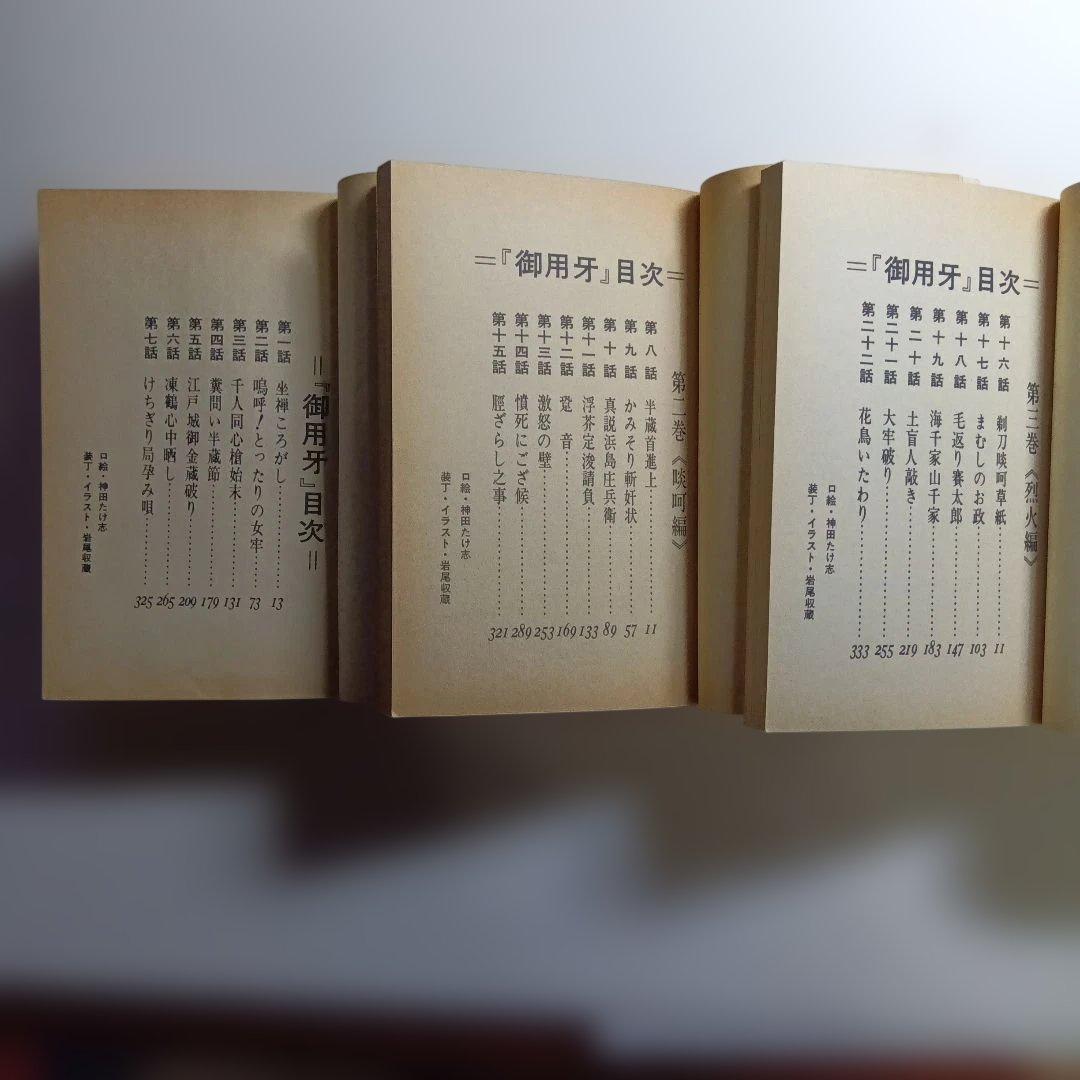 =『御用牙』目次=
第一話 坐禅ころがし……………13
第二話 嗚呼!とったりの女牢……………73
第三話 千人同心槍始末……………131
第四話 糞問い半蔵節……………179
第五話 江戸城御金蔵破り……………209
第六話 凍鶴心中晒し……………265
第七話 けちぎり局孕み唄……………325
口絵・神田たけ志
装丁・イラスト・岩尾収蔵
=『御用牙』目次=
第二巻《啖呵編》
第八話 半蔵首進上……………11
第九話 かみそり斬奸状……………57
第十話 真説浜島庄兵衛……………89
第十一話 浮芥定浚請負……………133
第十二話 跫音……………169
第十三話 激怒の壁……………253
第十四話 憤死にござ候……………289
第十五話 脛ざらし之事……………321
口絵・神田たけ志
装丁・イラスト・岩尾収蔵
=『御用牙』目次=
第三巻《烈火編》
第十六話 剃刀啖呵草紙……………11
第十七話 まむしのお政……………103
第十八話 毛返り賽太郎……………147
第十九話 海千家山千家……………183
第二十話 土盲人敲き……………219
第二十一話 大牢破り……………255
第二十二話 花鳥いたわり……………333
口絵・神田たけ志
装丁・イラスト・岩尾収蔵